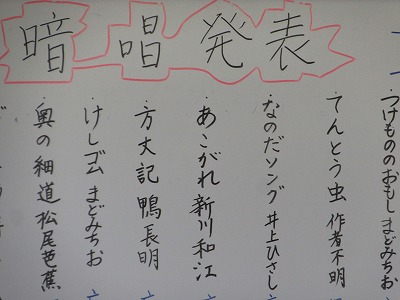 暗唱発表
・つけもののおもし まどみちお
・てんとう虫 作者不明
・なのだソング 井上ひさし
・あこがれ 新川和江
・方丈記 鴨長明
・けしゴム まどみちお
・奥の細道 松尾芭蕉